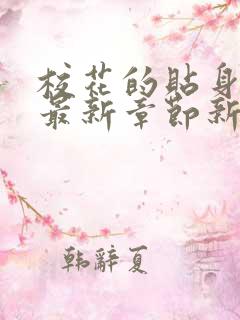 校花的贴身
最新章节新
韩辞夏